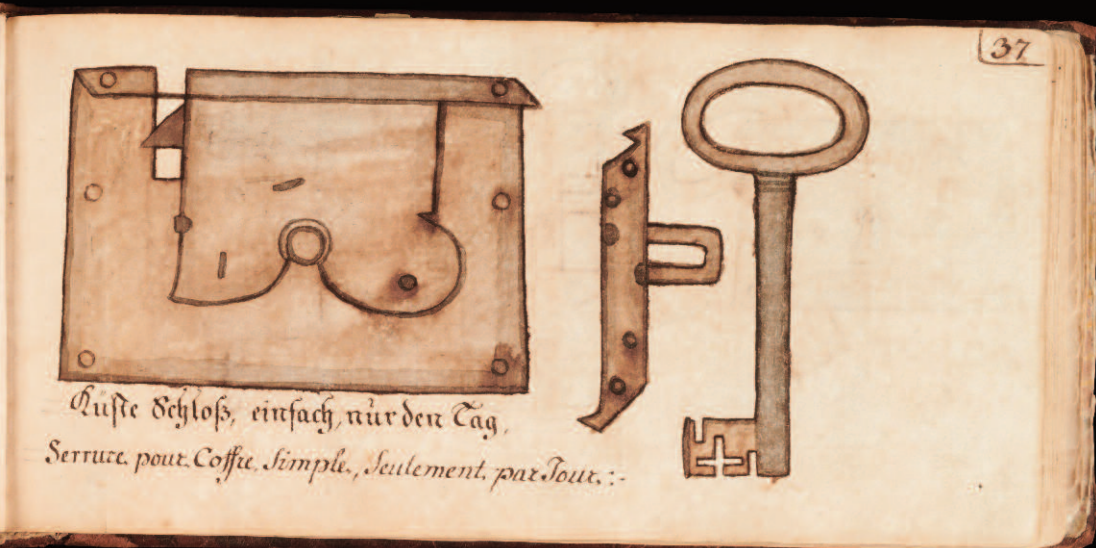 37
Kůste Schloß, einfach, nůr den Tag.
Serrure. pour. Coffre. Simple., Seulement. par Tour. :-